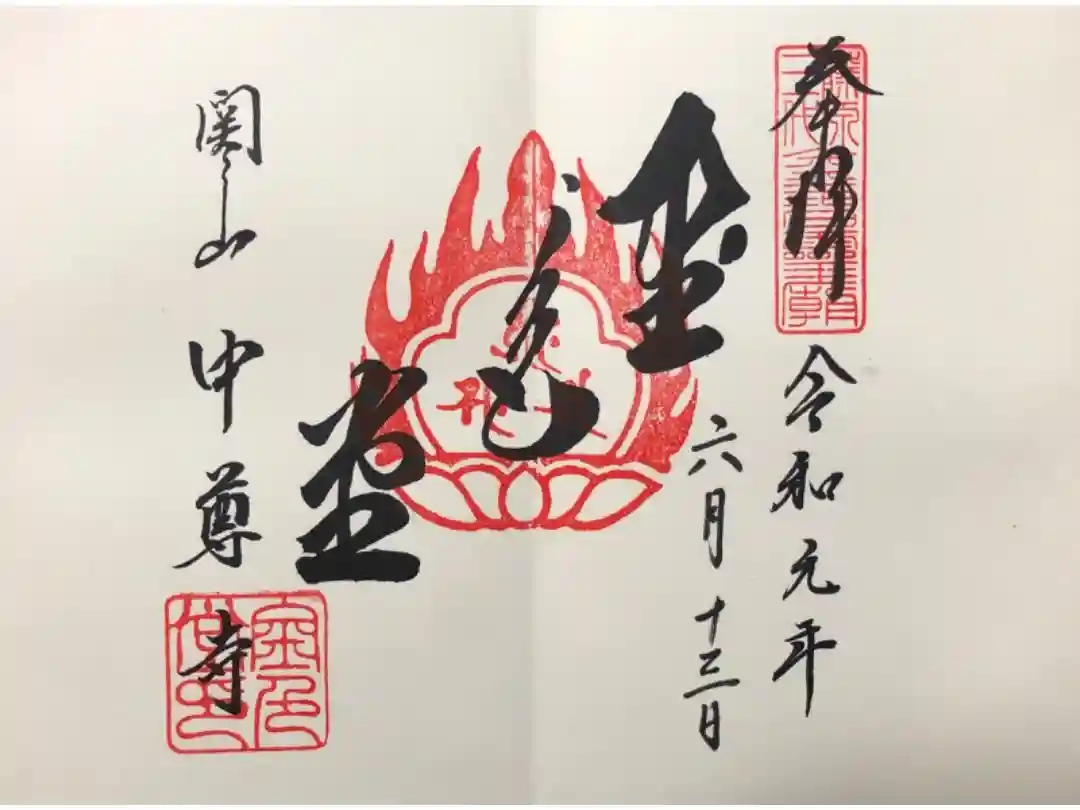 奉拝
令和元年
六月十三日
金色堂
関山 中尊寺